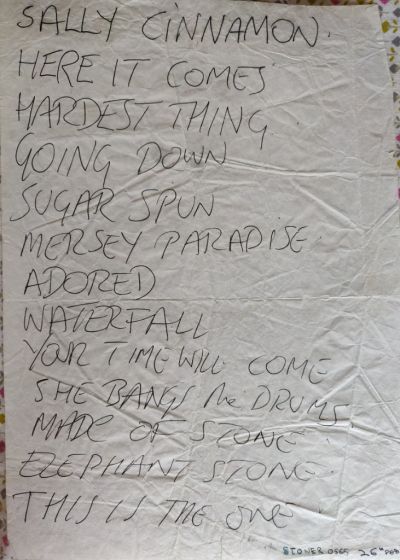 SALLY CINNAMON.
HERE IT COMES
HARDEST THING
GOING DOWN
SUGAR SPUN
MERSEY PARADISE.
ADORED
WATERFALL
YOUR TIME WILL COME
SHE BANGS the DRUMS.
MADE OF STONE.
ELEPHANT STONE.
THIS IS THE ONE
STONER 0565